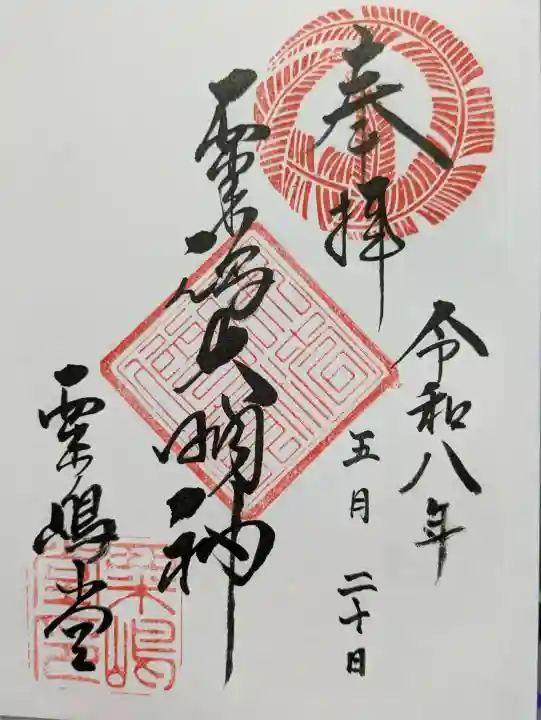 奉拝
令和八年
五月 二十日
粟嶋大明神
粟嶋堂